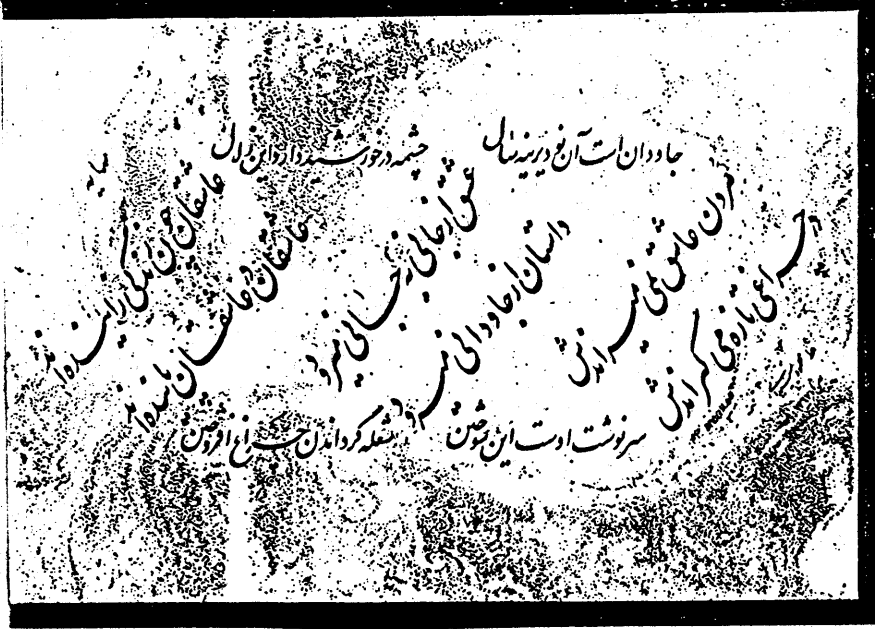 جاودان است آن نو دیرینه سال
چشمه در خورشید دارد این زلال
مردن عاشق نمی میراندش
در چراغی تازه می گیراندش
عشق از جانی به جانی میرود
داستان از جاودانی میرود
سرنوشت اوست این سوختن
شعله گرداندن چراغ افروختن
عاشقان چون زندگی زاینده اند
عاشقان در عاشقان پاینده اند
سایه